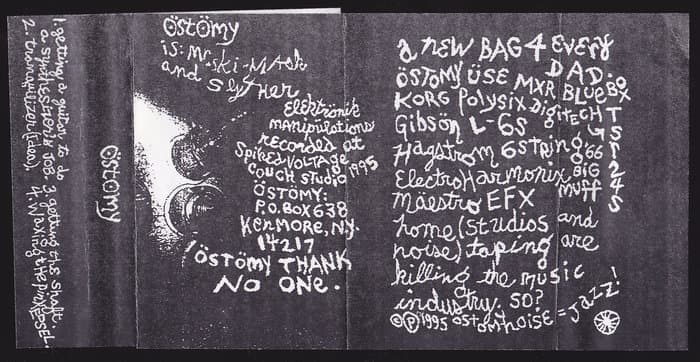 1. getting a guitar to do
a synthesizer's JOB. 3. getting the shaft.
2. tranquilizer(dea). 4. Waxing the pink EDSEL.
öSTÖMY
östömy
is: Mr. Ski-MASK
and Slyther
Elektrönik
manipulations
recorded at
SPIKED VOLTAGE
COUCH Studio 1995
ÖSTÖMY:
P.O. BOX 638
Kenmore, NY.
14217
ÖSTÖMY THANK
NO ONE.
a new BAG 4 EVERY
DAD.
ÖSTÖMY ÜSE MXR BLUE BOX
KORG PolySix DigiTECH TSR24S
Gibsön L-6S
Hagström 6string '66
ElectroHarmonix BIG
Muff
Maestro EFX
home (studios and
noise) taping are
killing the music
industry. SO?
© ℗ 1995 OSTOMYnoise = Jazz!